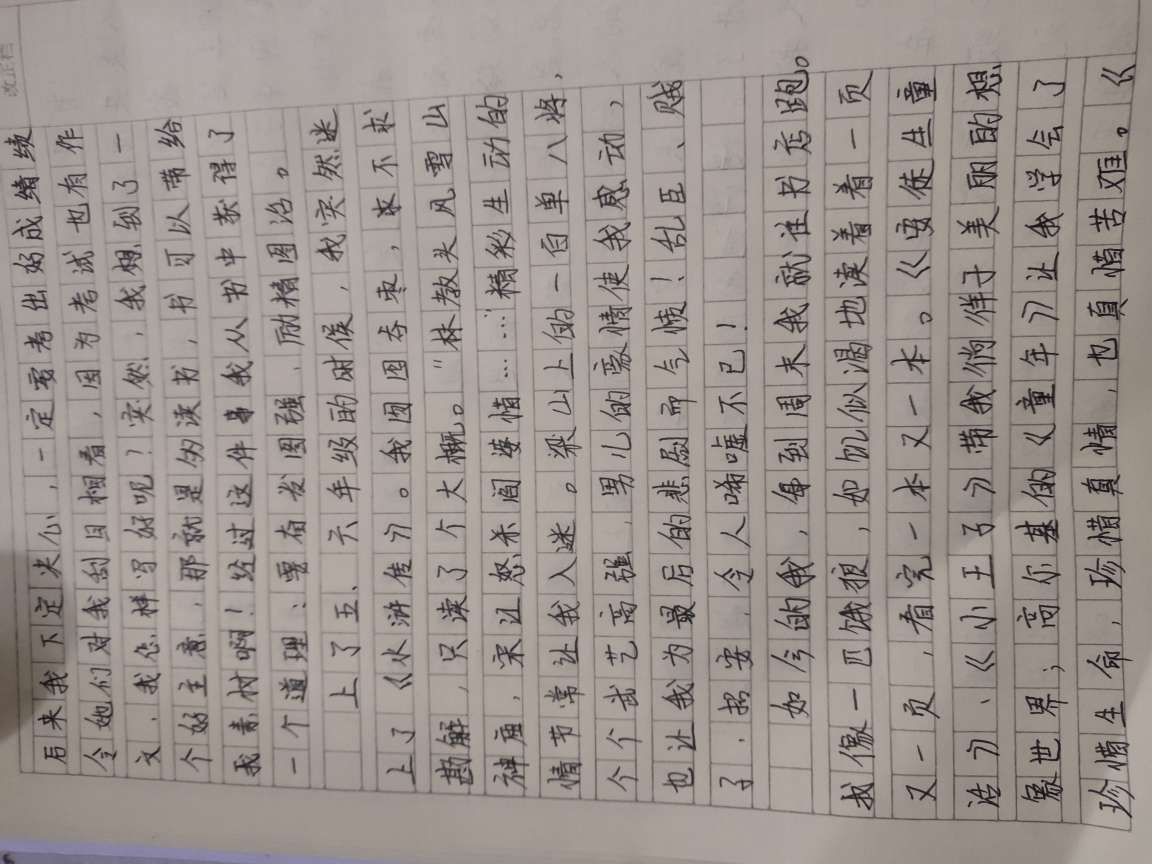 后来我下定决心,一定要考出好成绩绩
令她们对我刮目相看,因为考试也有作
文,我怎样写好呢?突然,我想到了一
个好主意,那就是多读书,书可以带给
我素材啊!经过这件事我从书中获得了
一个道理:要奋发图强,励精图治。
上了五、六年级的时候,我突然迷
上了《水浒传》。我囫囵吞枣,求不求
甚解,只读了个大概。"林教头风雪山
神庙,宋江怒杀阎婆惜……"精彩生动的
情节常让我入迷。梁山上的一百单八将,
个个武艺高强,男儿的豪情使我感动,
也让我为最后的悲剧而气愤!乱臣、贼
子,招安,令人唏嘘不已!
如今的我,每到周末我就往书店跑。
我像一匹饿狼,如饥似渴地读着着一页
又一页,看完一本又一本。《安徒生童
话》、《小王子》带我们徜徉于美丽的想
象世界;高尔基的《童年》让我学会了
珍惜生命,珍惜真情,也真惜苦难。《